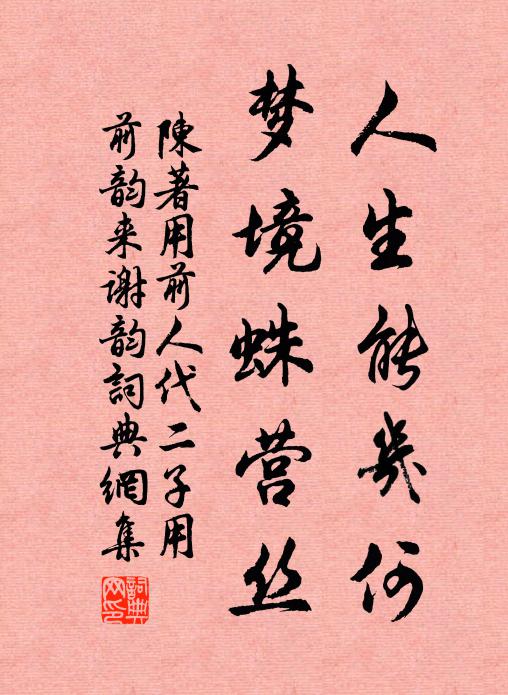 人生能幾何
梦境蛛营丝
陳著用前人代二子用
前韵来谢韵詞典網集
詞典網印